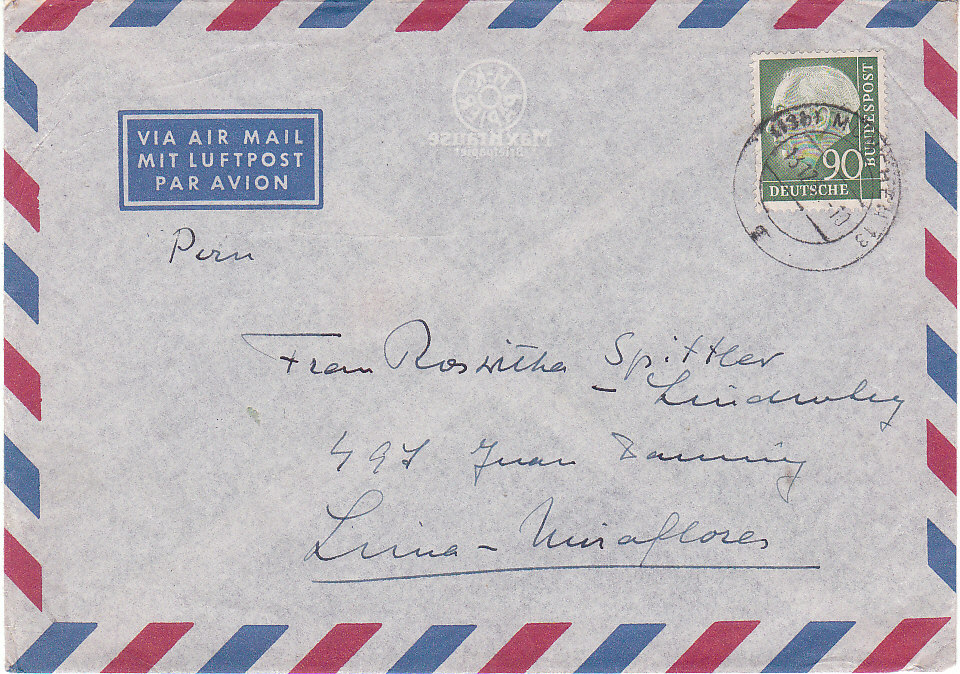 VIA AIR MAIL
MIT LUFTPOST
PAR AVION
M·K
PAPIER
Max Krause
BUNDESPOST
90
DEUTSCHE
13
Peru
Frau Roswitha Spittler
-
497 Juan Fanning
Lima - Miraflores